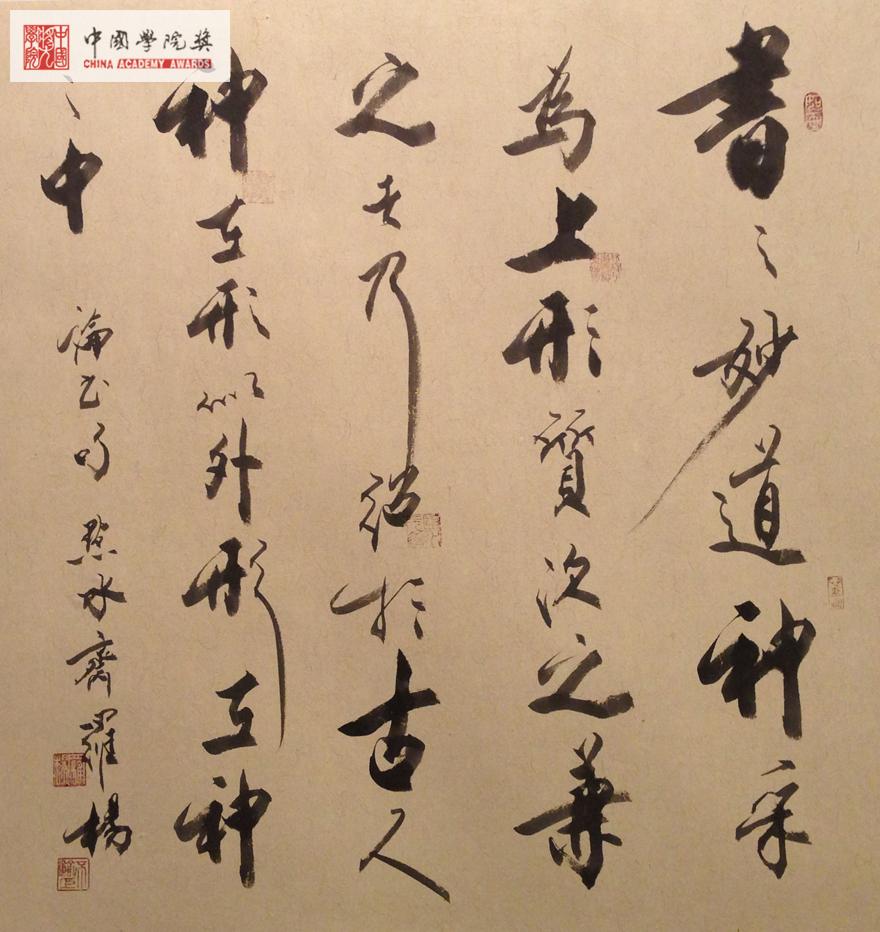 中國學院獎
CHINA ACADEMY AWARDS
書之妙道神采
為上形質次之兼
之者乃紹於古人
神在形以外形在神
之中
論书句 水齋羅楊